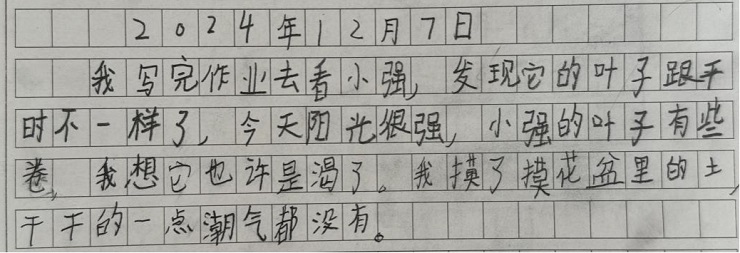 2024年12月7日
我写完作业去看小强，发现它的叶子跟平
时不一样了，今天阳光很强，小强的叶子有些
卷，我想它也许是渴了。我摸了摸花盆里的土，
干干的一点潮气都没有。